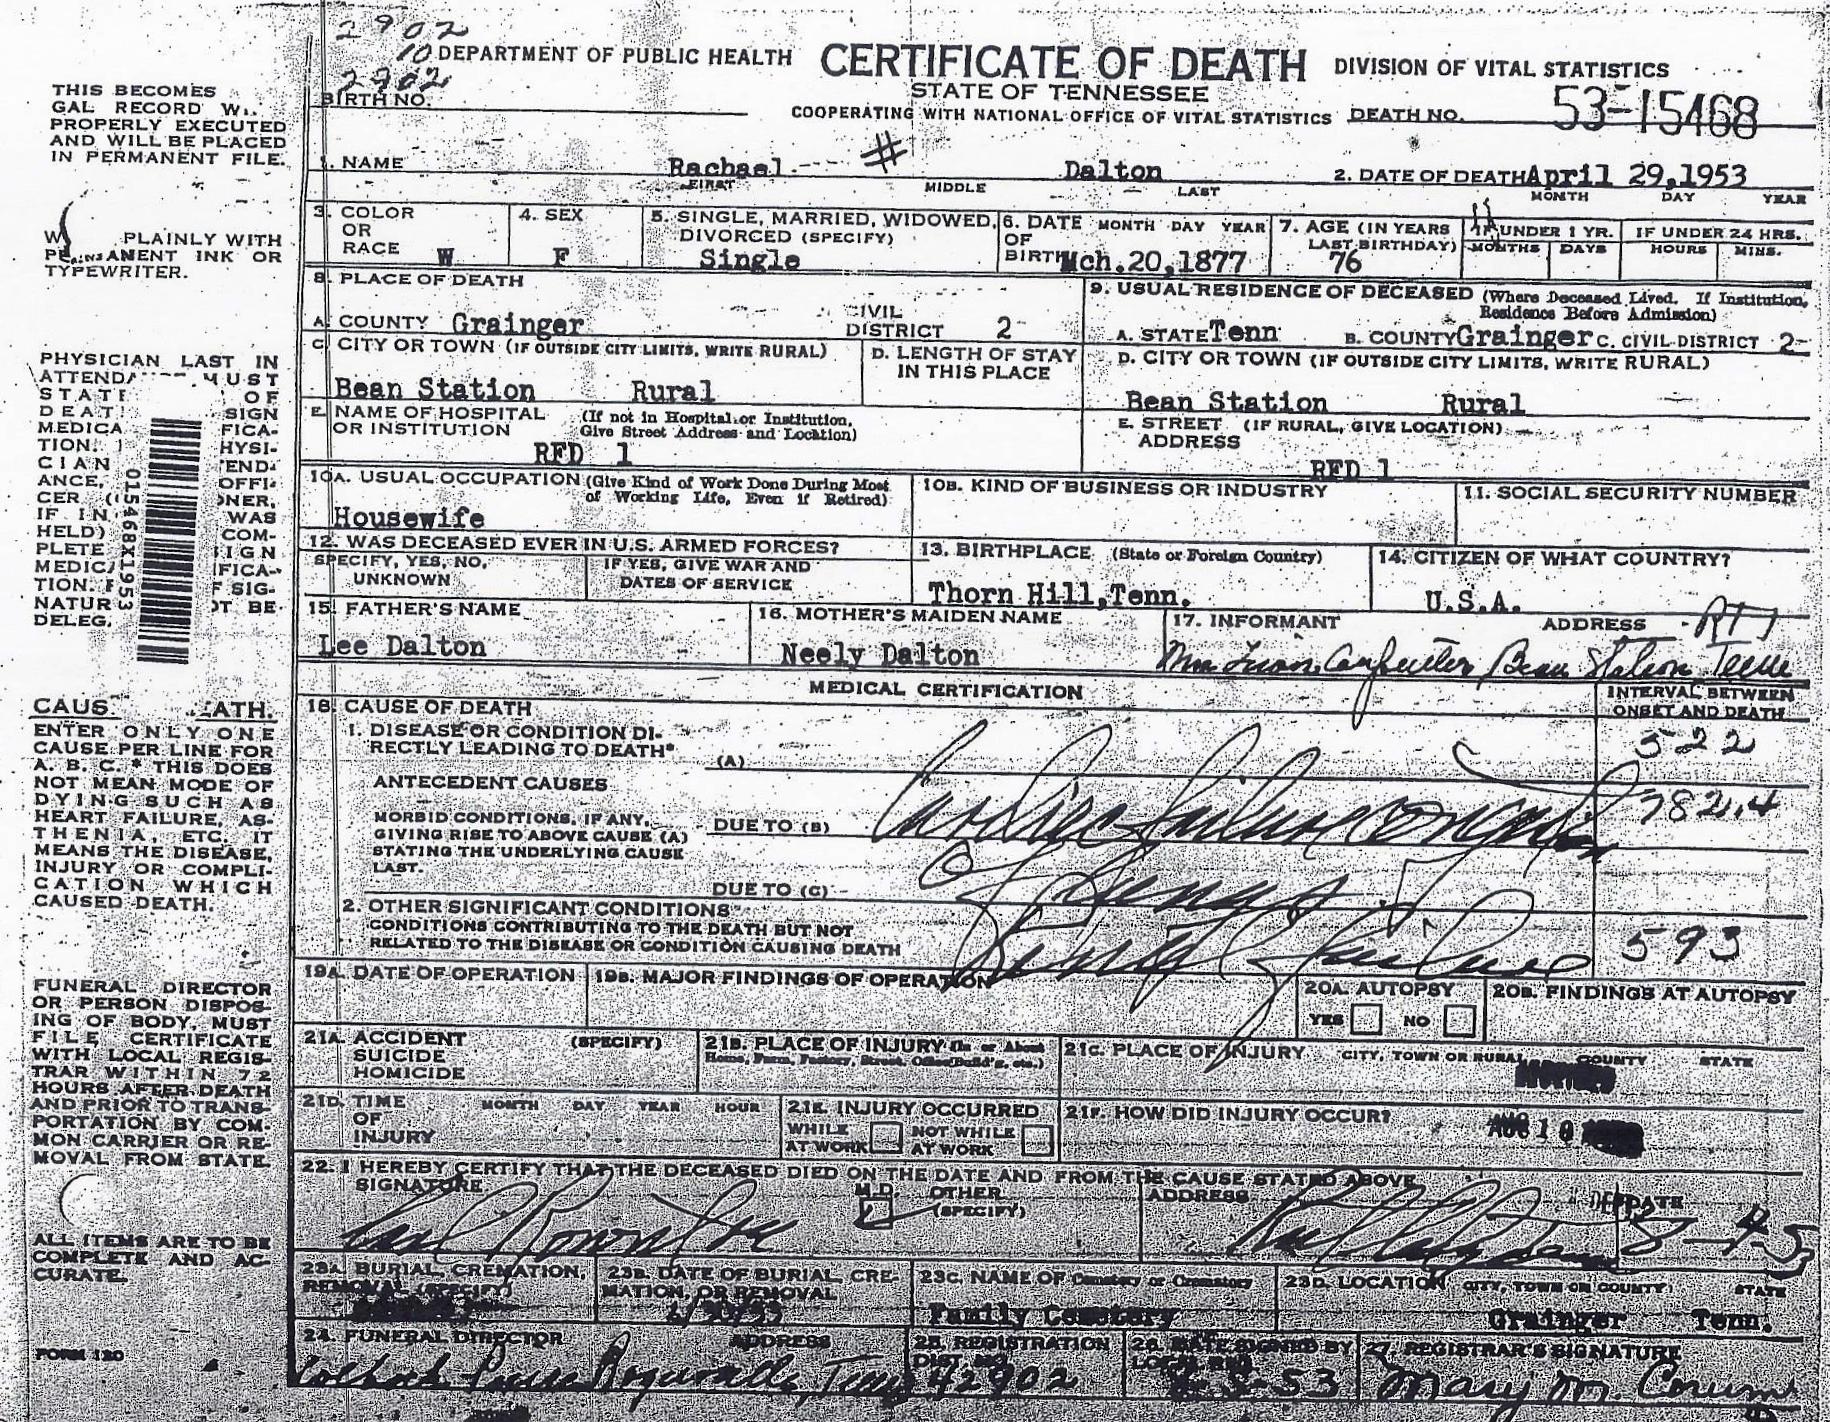 2902
10 DEPARTMENT OF PUBLIC HEALTH CERTIFICATE OF DEATH DIVISION OF VITAL STATISTICS
2902 STATE OF TENNESSEE
BIRTH NO. COOPERATING WITH NATIONAL OFFICE OF VITAL STATISTICS DEATH NO. 53-15468
THIS BECOMES
GAL RECORD
PROPERLY EXECUTED
AND WILL BE PLACED
IN PERMANENT FILE.
PLAINLY WITH
PERMANENT INK OR
TYPEWRITER.
PHYSICIAN LAST IN
MUST
OF
SIGN
MEDICA FICA-
TION. HYSI-
CIAN END-
ANCE, OFFI-
CER ONER,
IF IN WAS
HELD) COM-
PLETE SIGN
FICA-
TION. F SIG-
NATUR OT BE
DELEG.
015468X1953
CAUS ATH.
ENTER ONLY ONE
CAUSE PER LINE FOR
A. B. C. * THIS DOES
NOT MEAN MODE OF
DYING SUCH AS
HEART FAILURE, AS-
THENIA, ETC. IT
MEANS THE DISEASE,
INJURY OR COMPLI-
CATION WHICH
CAUSED DEATH.
FUNERAL DIRECTOR
OR PERSON DISPOS-
ING OF BODY, MUST
FILE CERTIFICATE
WITH LOCAL REGIS-
TRAR WITHIN 72
HOURS AFTER DEATH
AND PRIOR TO TRANS-
PORTATION BY COM-
MON CARRIER OR RE-
MOVAL FROM STATE.
ALL ITEMS ARE TO BE
COMPLETE AND AC-
CURATE.
FORM 120
1. NAME Rachael ---- # Dalton 2. DATE OF DEATH April 29,1953
FIRST MIDDLE LAST MONTH DAY YEAR
3. COLOR OR RACE W 4. SEX F 5. SINGLE, MARRIED, WIDOWED, DIVORCED (SPECIFY) Single
6. DATE OF BIRTH MONTH DAY YEAR Mch.20,1877 7. AGE (IN YEARS LAST BIRTHDAY) 76 IF UNDER 1 YR. MONTHS DAYS IF UNDER 24 HRS. HOURS MINS.
8. PLACE OF DEATH
A. COUNTY Grainger CIVIL DISTRICT 2
C. CITY OR TOWN (IF OUTSIDE CITY LIMITS, WRITE RURAL) Bean Station Rural
D. LENGTH OF STAY IN THIS PLACE
E. NAME OF HOSPITAL OR INSTITUTION (If not in Hospital or Institution, Give Street Address and Location) RFD 1
9. USUAL RESIDENCE OF DECEASED (Where Deceased Lived. If Institution, Residence Before Admission)
A. STATE Tenn B. COUNTY Grainger C. CIVIL DISTRICT 2
D. CITY OR TOWN (IF OUTSIDE CITY LIMITS, WRITE RURAL) Bean Station Rural
E. STREET ADDRESS (IF RURAL, GIVE LOCATION) RFD 1
10A. USUAL OCCUPATION (Give Kind of Work Done During Most of Working Life, Even if Retired) Housewife
10B. KIND OF BUSINESS OR INDUSTRY
11. SOCIAL SECURITY NUMBER
12. WAS DECEASED EVER IN U.S. ARMED FORCES?
SPECIFY, YES, NO, UNKNOWN
IF YES, GIVE WAR AND DATES OF SERVICE
13. BIRTHPLACE (State or Foreign Country) Thorn Hill,Tenn.
14. CITIZEN OF WHAT COUNTRY? U.S.A.
15. FATHER'S NAME Lee Dalton
16. MOTHER'S MAIDEN NAME Neely Dalton
17. INFORMANT ADDRESS RT 1
Carpenter, Bean Station, Tenn
MEDICAL CERTIFICATION
18. CAUSE OF DEATH
INTERVAL BETWEEN ONSET AND DEATH
1. DISEASE OR CONDITION DIRECTLY LEADING TO DEATH* (A) 522
ANTECEDENT CAUSES
MORBID CONDITIONS, IF ANY, GIVING RISE TO ABOVE CAUSE (A) STATING THE UNDERLYING CAUSE LAST.
DUE TO (B) Cardiac failure congestion 782.4
DUE TO (C) of Lungs
2. OTHER SIGNIFICANT CONDITIONS
CONDITIONS CONTRIBUTING TO THE DEATH BUT NOT RELATED TO THE DISEASE OR CONDITION CAUSING DEATH Kidney failure 593
19A. DATE OF OPERATION
19B. MAJOR FINDINGS OF OPERATION
20A. AUTOPSY YES NO
20B. FINDINGS AT AUTOPSY
21A. ACCIDENT SUICIDE HOMICIDE (SPECIFY)
21B. PLACE OF INJURY (In or About Home, Farm, Factory, Street, Office Build'g, etc.)
21C. PLACE OF INJURY CITY, TOWN OR RURAL COUNTY STATE
21D. TIME OF INJURY MONTH DAY YEAR HOUR
21E. INJURY OCCURRED WHILE AT WORK NOT WHILE AT WORK
21F. HOW DID INJURY OCCUR? AUG 10
22. I HEREBY CERTIFY THAT THE DECEASED DIED ON THE DATE AND FROM THE CAUSE STATED ABOVE
SIGNATURE M.D. OTHER (SPECIFY) ADDRESS DATE
23A. BURIAL, CREMATION, REMOVAL (SPECIFY)
23B. DATE OF BURIAL, CREMATION, OR REMOVAL
23C. NAME OF Cemetery or Crematory Family Cemetery
23D. LOCATION CITY, TOWN OR COUNTY) STATE Grainger Tenn.
24. FUNERAL DIRECTOR ADDRESS Rogersville, Tenn
25. REGISTRATION DIST. NO. 42902
26. DATE SIGNED BY LOCAL REG. 8-53
27. REGISTRAR'S SIGNATURE Mary M. Corum